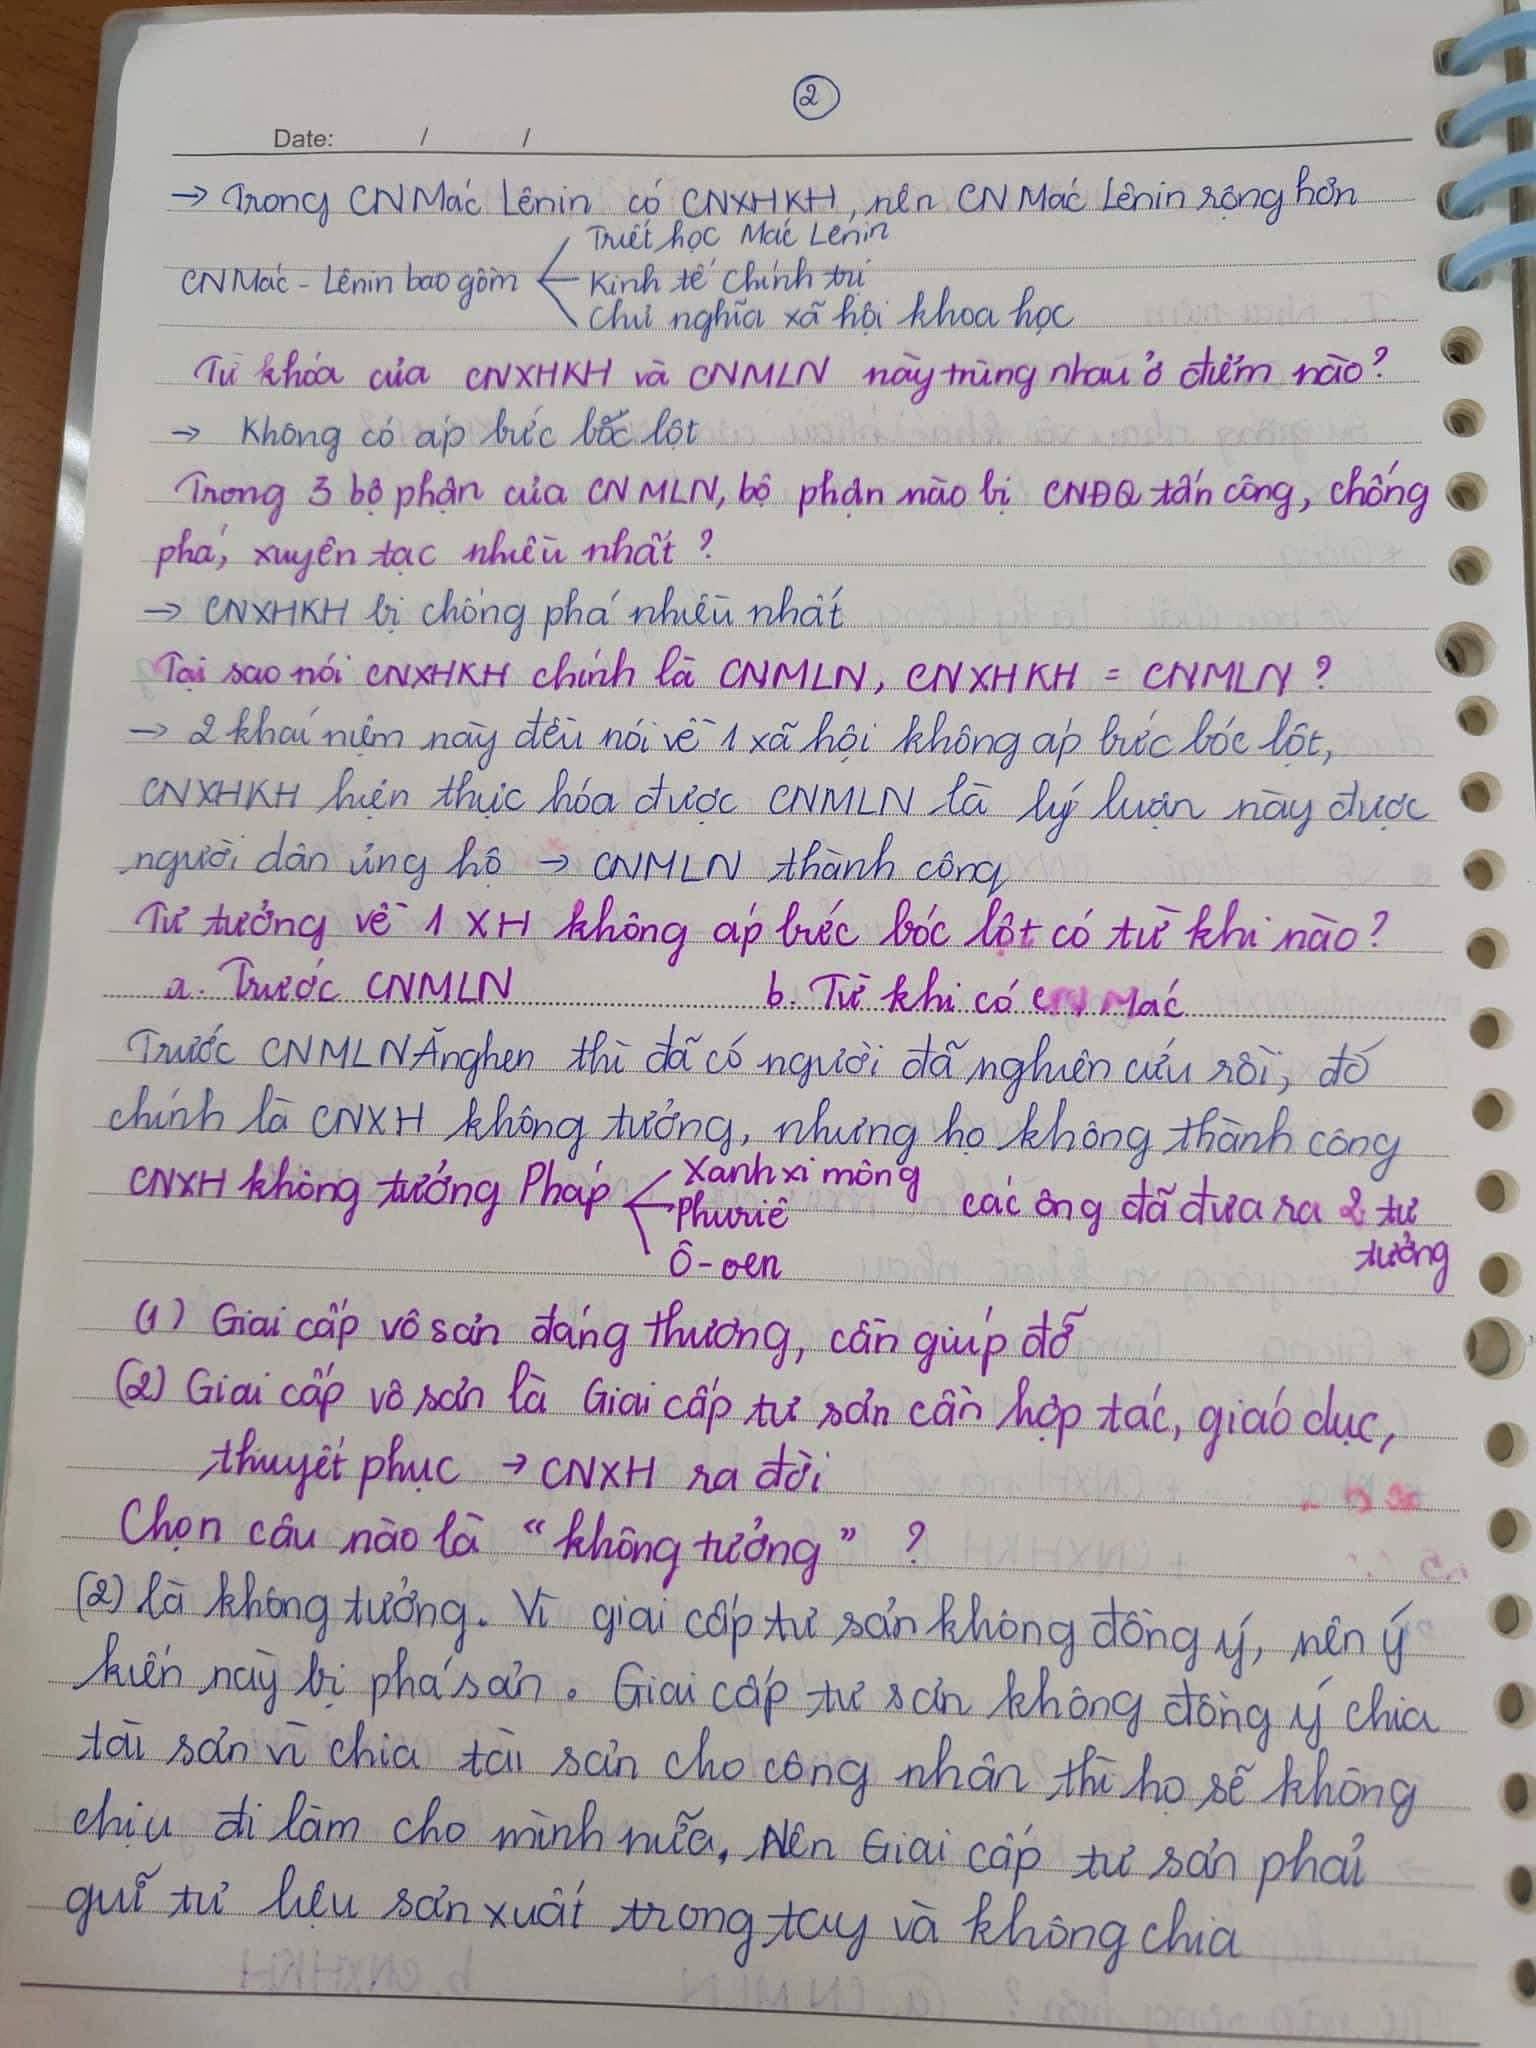 2
Date: / /
→ Trong CN Mác Lênin có CNXHKH, nên CN Mác Lênin rộng hơn
Triết học Mác Lênin
CN Mác - Lênin bao gồm Kinh tế chính trị
Chủ nghĩa xã hội khoa học
Từ khóa của CNXHKH và CNMLN này trùng nhau ở điểm nào?
→ Không có áp bức bốc lột
Trong 3 bộ phận của CNMLN, bộ phận nào bị CNĐQ tấn công, chống
phá, xuyên tạc nhiều nhất?
→ CNXHKH bị chống phá nhiều nhất
Tại sao nói CNXHKH chính là CNMLN, CNXHKH = CNMLN?
→ 2 khái niệm này đều nói về 1 xã hội không áp bức bóc lột,
CNXHKH hiện thực hóa được CNMLN là lý luận này được
người dân ủng hộ → CNMLN thành công
Tư tưởng về 1 XH không áp bức bóc lột có từ khi nào?
a. Trước CNMLN b. Từ khi có CN Mác
Trước CNMLN Ănghen thì đã có người đã nghiên cứu rồi, đó
chính là CNXH không tưởng, nhưng họ không thành công
CNXH không tưởng Pháp Xanh xi mông các ông đã đưa ra 2 tư
Phuriê tưởng
Ô-oen
(1) Giai cấp vô sản đáng thương, cần giúp đỡ
(2) Giai cấp vô sản là Giai cấp tư sản cần hợp tác, giáo dục,
thuyết phục → CNXH ra đời
Chọn câu nào là "không tưởng"?
(2) là không tưởng. Vì giai cấp tư sản không đồng ý, nên ý
kiến này bị phá sản. Giai cấp tư sản không đồng ý chia
tài sản vì chia tài sản cho công nhân thì họ sẽ không
chịu đi làm cho mình nữa. Nên Giai cấp tư sản phải
giữ tư liệu sản xuất trong tay và không chia